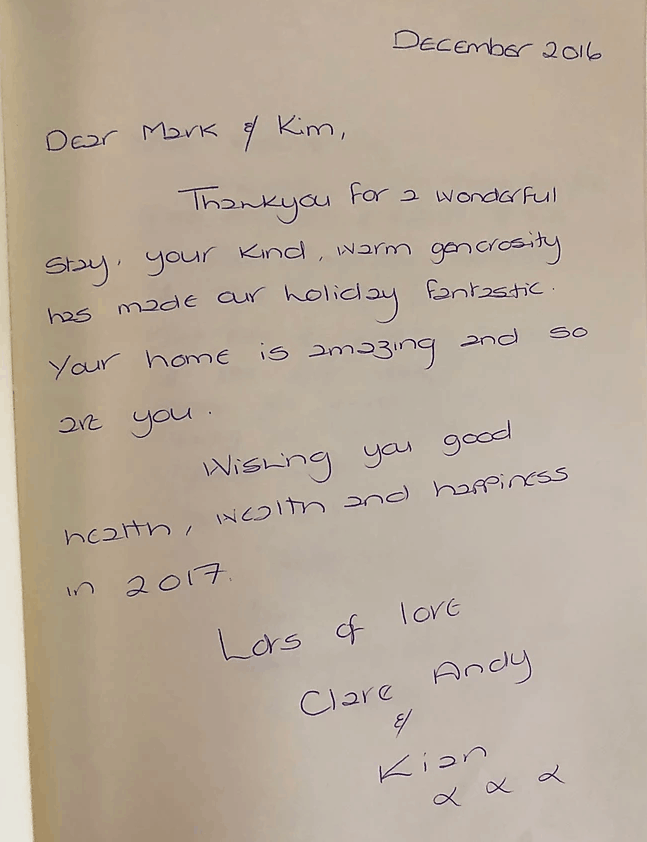 December 2016
Dear Mark & Kim,
Thankyou for a wonderful
stay, your kind, warm generosity
has made our holiday fantastic.
Your home is amazing and so
are you.
Wishing you good
health, wealth and happiness
in 2017.
Lots of love
Clare Andy
&
Kian
x x x